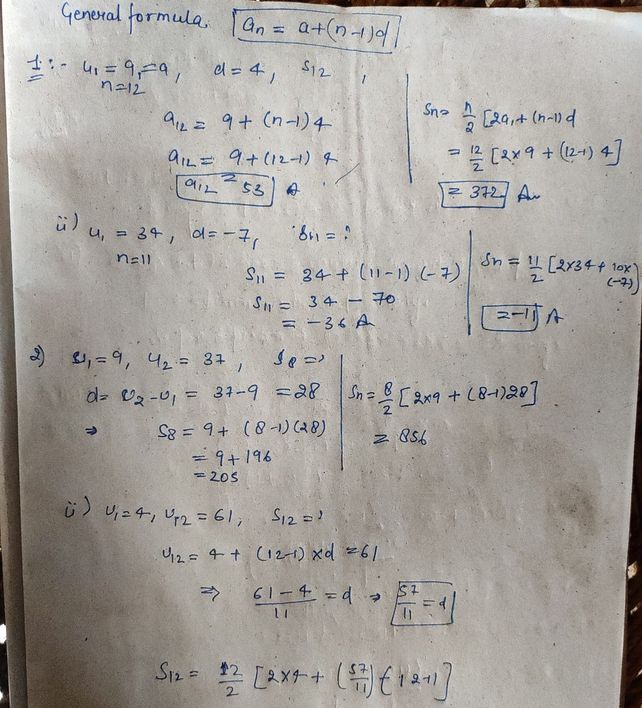 General formula. an = a+(n-1)d
1:- u1 = 9,=9, d=4, S12 ,
n=12
a12 = 9+(n-1)4
a12 = 9+(12-1) 4
a12 = 53 A
Sn= n/2 [2a1+(n-1)d
= 12/2 [2×9 + (12-1) 4]
= 372 Am
ii) u1 = 34, d=-7, Sn = ?
n=11
S11 = 34 + (11-1) (-7)
S11 = 34 - 70
= -36 A
Sn = 11/2 [2×34 + 10×(-7)]
= -11 A
2) u1=9, u2 = 37, S8 = ?
d= u2-u1 = 37-9 = 28
⇒ S8 = 9+ (8-1)(28)
= 9+196
=205
Sn= 8/2 [2×9 + (8-1)28]
= 856
ii) u1=4, u12 = 61, S12 = ?
u12 = 4 + (12-1) ×d =61
⇒ 61-4/11 = d ⇒ 57/11 = d
S12 = 12/2 [2×4 + (57/11) (12-1]